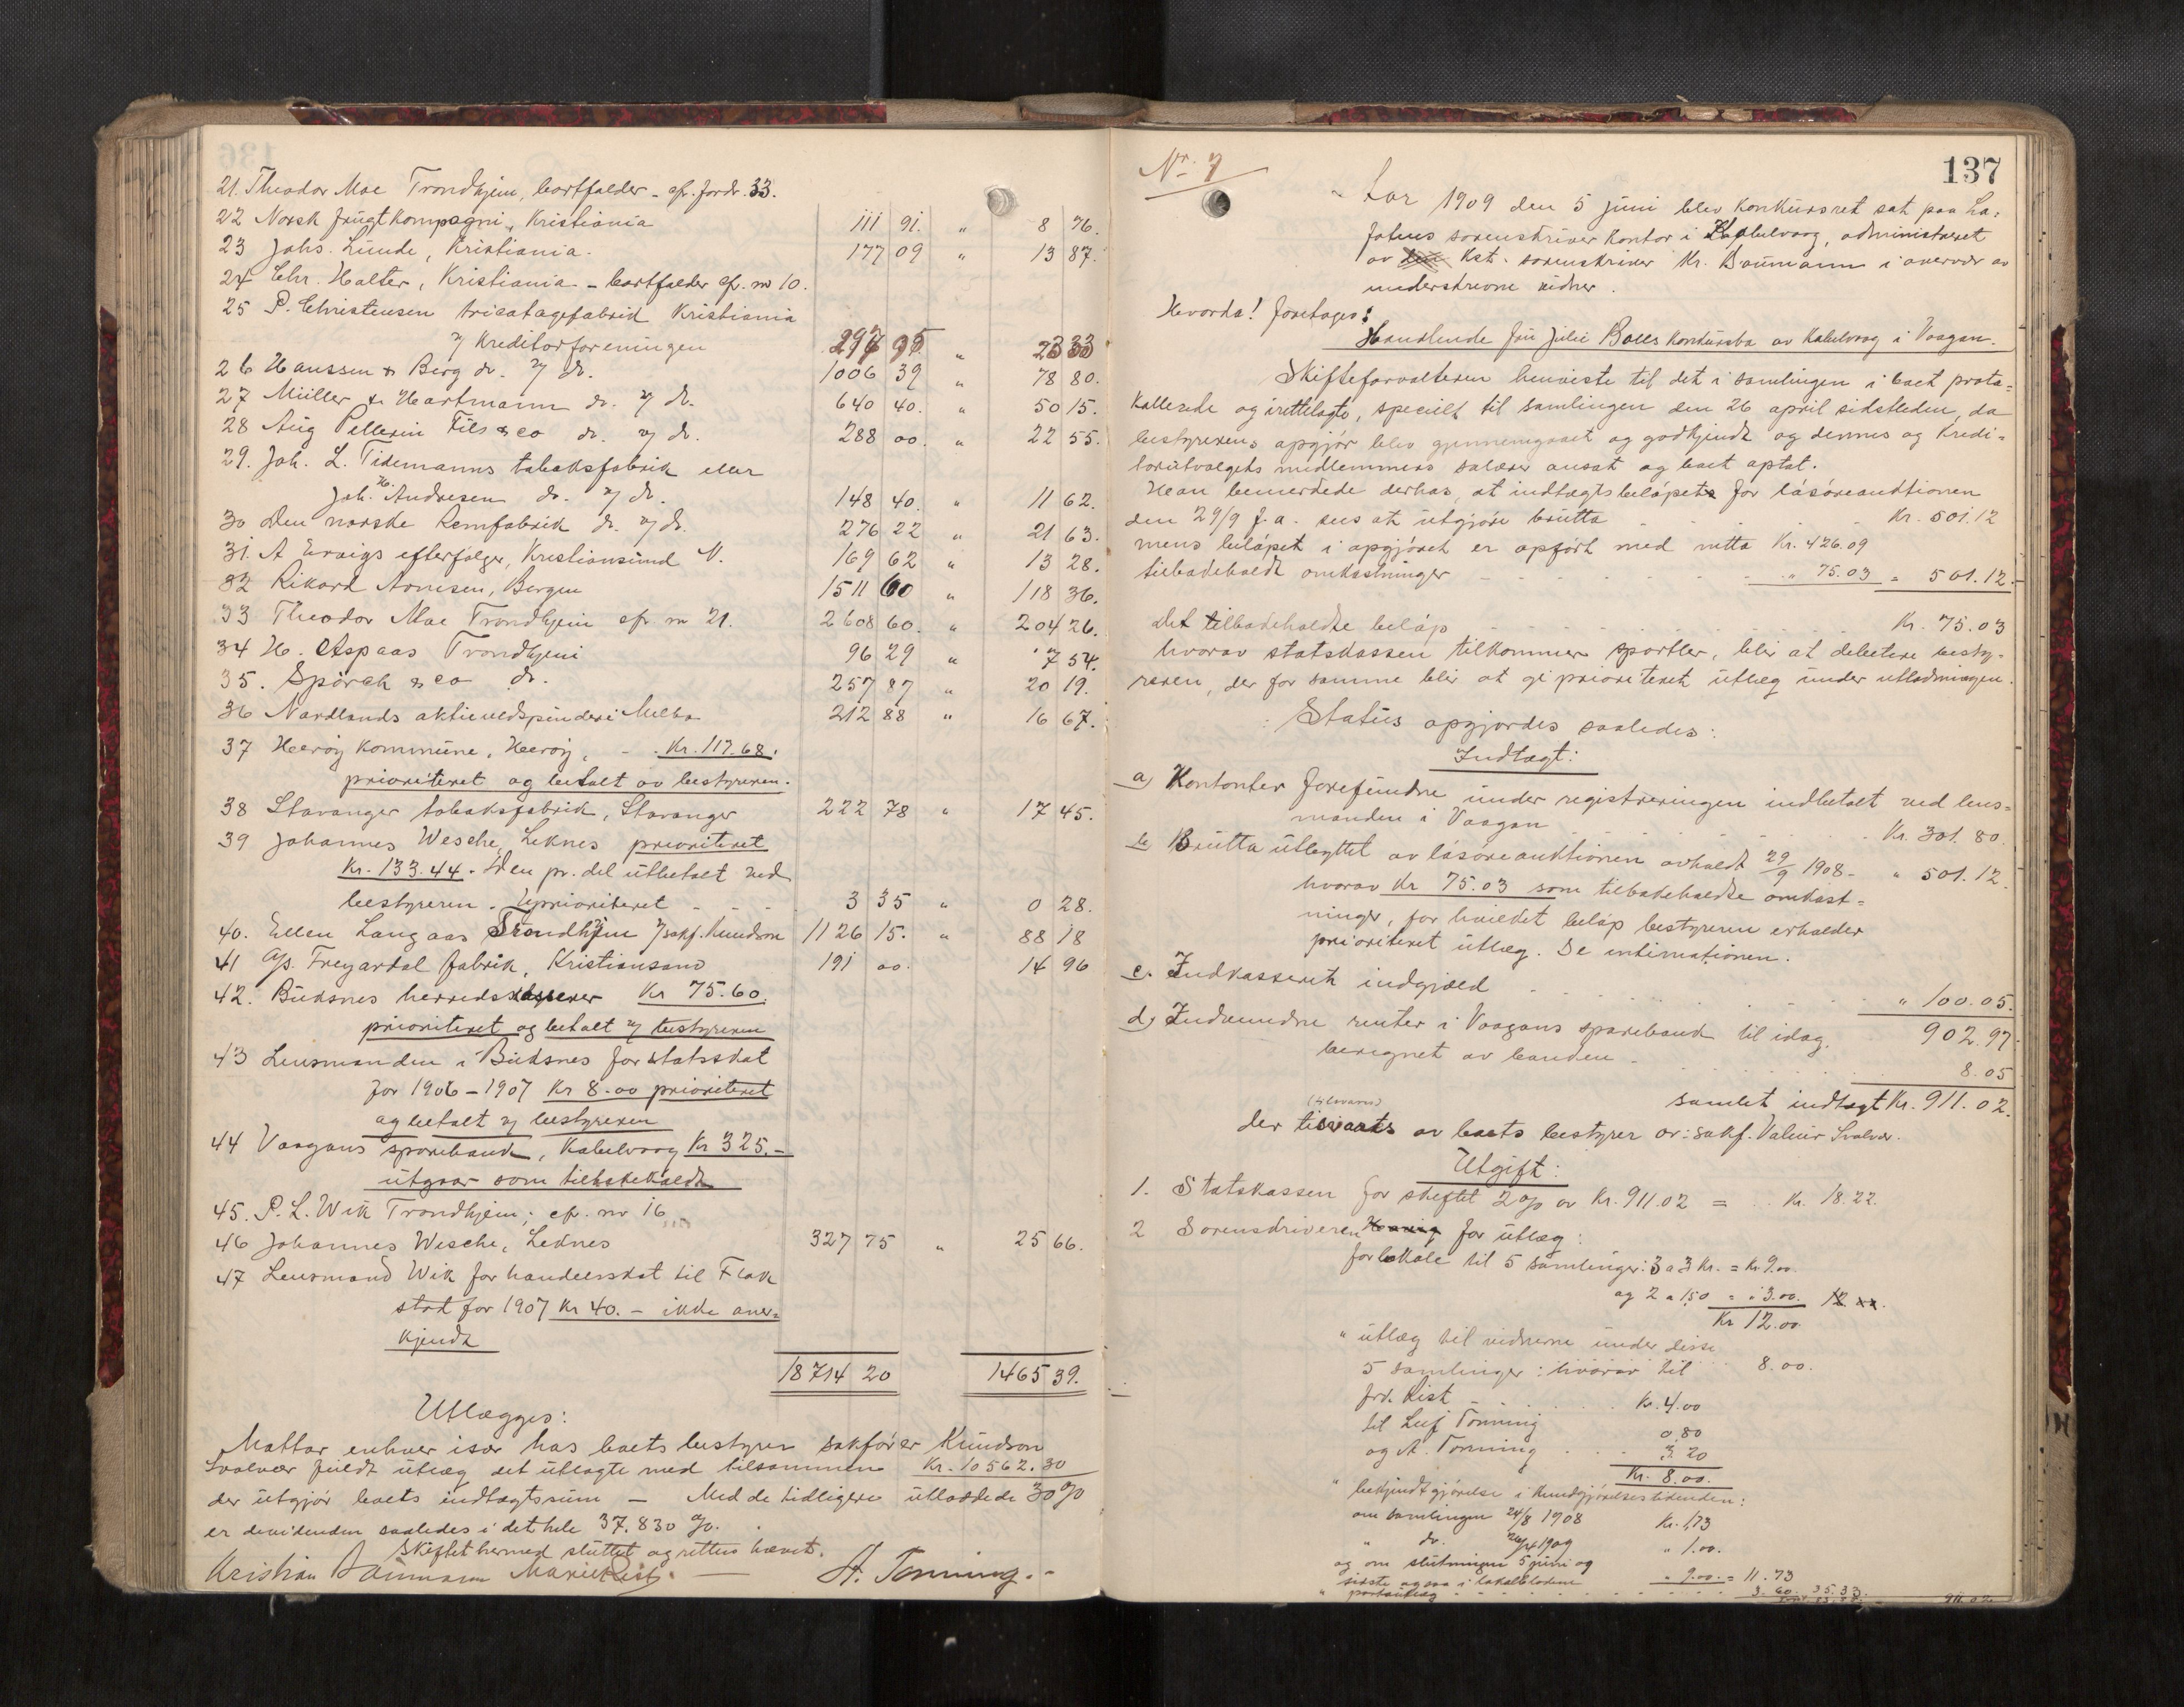 21. Theodor Moe Trondhjem, bortfalder - cfr. fordr. 33.
22 Norsk frugtkompagni, Kristiania 111 91. " 8 76.
23 Johs. Lunde, Kristiania. 177 09 " 13 87.
24 Chr. Holter, Kristiania - bortfalder cfr. nr 10.
25 P. Christensen tricotagefabrik Kristiania
v/ Kreditorforeningen 297 95 " 23 33
26 Hanssen & Berg do. v/ do. 1006 39 " 78 80.
27 Müller & Hartmann do. v/ do. 640 40. " 50 15.
28 Aug Pellerin Fils & co do. v/ do. 288 00. " 22 55.
29. Joh. L. Tidemanns tobaksfabrik eller
Joh. H. Andresen do. v/ do. 148 40. " 11 62.
30 Den norske Remfabrik do. v/ do. 276 22 " 21 63.
31. A Ervigs efterfølger, Kristiansund N. 169 62 " 13 28.
32 Rikard Arnesen, Bergen 1511 60 " 118 36.
33 Theodor Moe Trondhjem cfr nr 21. 2608 60. " 204 26.
34 H. Aspaas Trondhjem 96 29 " 7 54.
35. Spörck & co do. 257 87 " 20 19.
36 Nordlands aktieuldspinderi Melbo 212 88 " 16 67.
37 Herøy kommune, Herøy, - . Kr. 117.68.
prioriteret og betalt av bestyreren.
38 Stavanger tobaksfabrik, Stavanger 222 78 " 17 45.
39 Johannes Wesche, Leknes prioriteret
Kr. 133.44. Den pr. del utbetalt ved
bestyreren. Uprioriteret - - - 3 35 " 0 28.
40. Ellen Langaas Trondhjem v/ sakf. Knudson 1126 15. " 88 18
41 A/s. Freyardal fabrik, Kristiansand 191 00. 14 96
42. Buksnes herredskasserer Kr 75.60.
prioriteret og betalt v/ bestyreren
43 Lensmanden i Buksnes for statsskat
for 1906-1907 Kr 8.00 prioriteret
og betalt v/ bestyreren
44 Vaagans sparebank, Kabelvaag Kr 325.-
utgaar som tilbakekaldt
45. P. L. Wik Trondhjem; cfr. nr 16
46 Johannes Wesche, Leknes 327 75 " 25 66.
47 Lensmand Wik for handelsskat til Flak
stad for 1907 Kr 40. - ikke aner-
kjendt
18714 20 1465 39.
Utlægges:
Mottar enhver især hos boets bestyrer sakfører Knudson
Svolvær fuldt utlæg det utlagte med tilsammen Kr. 10562.30
der utgjør boets indtægtssum - Med de tidligere utloddede 30 %
er dividenden saaledes i det hele 37.830 %.
Skiftet hermed sluttet og retten hævet.
Kristian Baumann Marie Rist. - A. Tonning. -
Nr. 7
137
Aar 1909 den 5 juni blev konkursret sat paa Lo-
fotens sorenskriver kontor i Kabelvaag, administreret
av kst. sorenskriver Kr. Baumann i overvær av
underskrevne vidner.
Hvorda! foretoges:
Handlende fru Julie Bolls konkursbo av Kabelvaag i Vaagan.
Skifteforvalteren henviste til det i samlingen i boet proto-
kollerede og irettelagte, specielt til samlingen den 26 april sidstleden, da
bestyrerens opgjør blev gjennemgaaet og godkjendt og dennes og kredi-
torutvalgets medlemmers salærer ansat og boet optat.
Han bemerkede derhos, at indtægtsbeløpet for løsøreauktionen
den 29/9 f. a. sees at utgjøre brutto Kr. 501.12
mens beløpet i opgjøret er opført med netto Kr. 426.09
tilbakeholdt omkostninger - - - " 75.03 = 501.12.-
Det tilbakeholdte beløp - - - Kr. 75.03
hvorav statskassen tilkommer sportler, blir at debitere besty-
reren, der for samme blir at gi prioriteret utlæg under utlodningen.
Status opgjordes saaledes:
Indtægt:
a) Kontanter forefundne under registreringen indbetalt ved lens-
manden i Vaagan - - - Kr. 301.80.
b. Brutto utbyttet av løsøreauktionen avholdt 29/9 1908 - " 501.12.
hvorav Kr 75.03 som tilbakeholdte omkost-
ninger, for hvilket beløp bestyreren erholder
prioriteret utlæg. Se intimationen.
c. Indkasseret indgjæld - - - " 100.05.
902.97.
d) Indvundne renter i Vaagans sparebank til idag.
beregnet av banken - - - 8.05
samlet indtægt Kr. 911.02.
(tilsvares)
der tilsvares av boets bestyrer or: sakf. Valeur Svolvær.
Utgift:
1. Statskassen for skiftet 2 % av Kr. 911.02 = .. Kr. 18.22.
2 Sorenskriveren for utlæg:
for lokale til 5 samlinger: 3 a 3 Kr. = Kr. 9.00.
og 2 a 1.50 = " 3.00. 12 xx.
Kr 12.00
" utlæg til vidnerne under disse
5 samlinger: hvorav til 8.00.
frk. Rist - - - Kr. 4.00
til Leif Tonning 0.80
og A. Tonning - - 3.20
Kr. 8.00.
" bekjendtgjørelse i Kundgjørelsestidenden:
om samlingen 24/8 1908 Kr. 1.73
" do. 26/4 1909 " 1.00.
og om slutningen 5 juni og
sidste ogsaa i lokalbladene " 9.00. = 11.73
" portoutlæg - - - 3.60. 35.33.
911.02